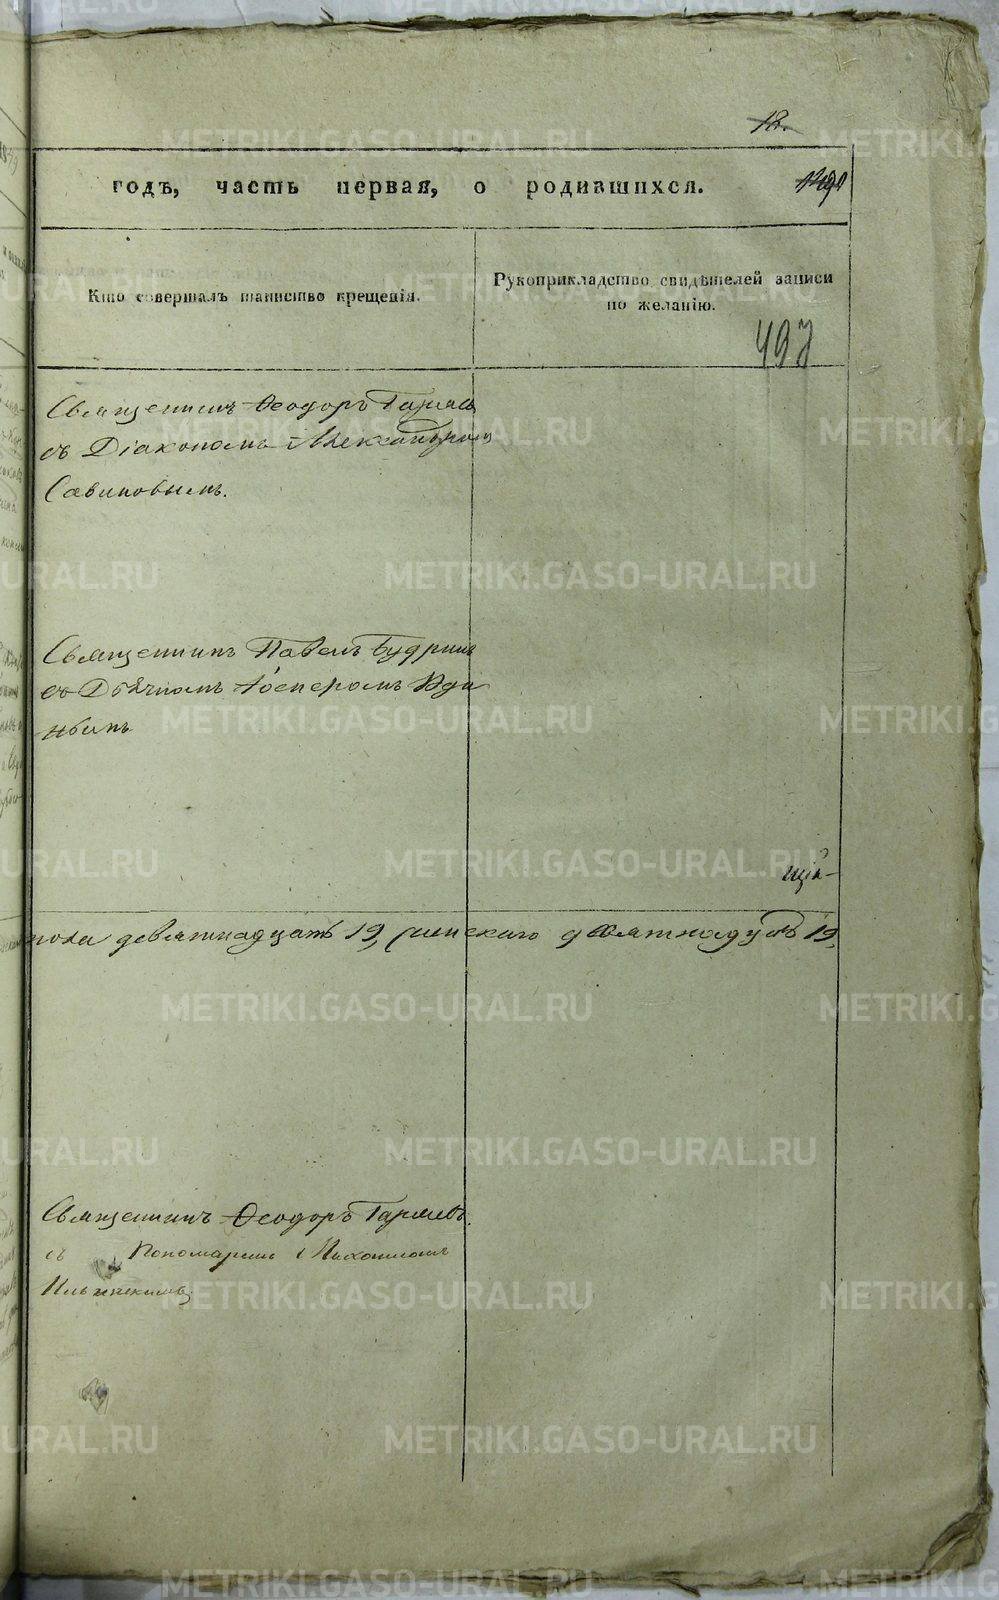 18.
годъ, часть первая, о родившихся.
Кто совершалъ таинство крещенія.
Рукоприкладство свидѣтелей записи
по желанію.
497
Священникъ Ѳеодоръ Гаряевъ
съ Діакономъ Александромъ
Савиновымъ.
Священникъ Павелъ Будринъ
съ Дьячкомъ
щій
пола девятнадцать 19, женскаго девятнадцать 19,
Священникъ Ѳеодоръ Гаряевъ
съ Пономаремъ
Ильинскимъ
METRIKI.GASO-URAL.RU